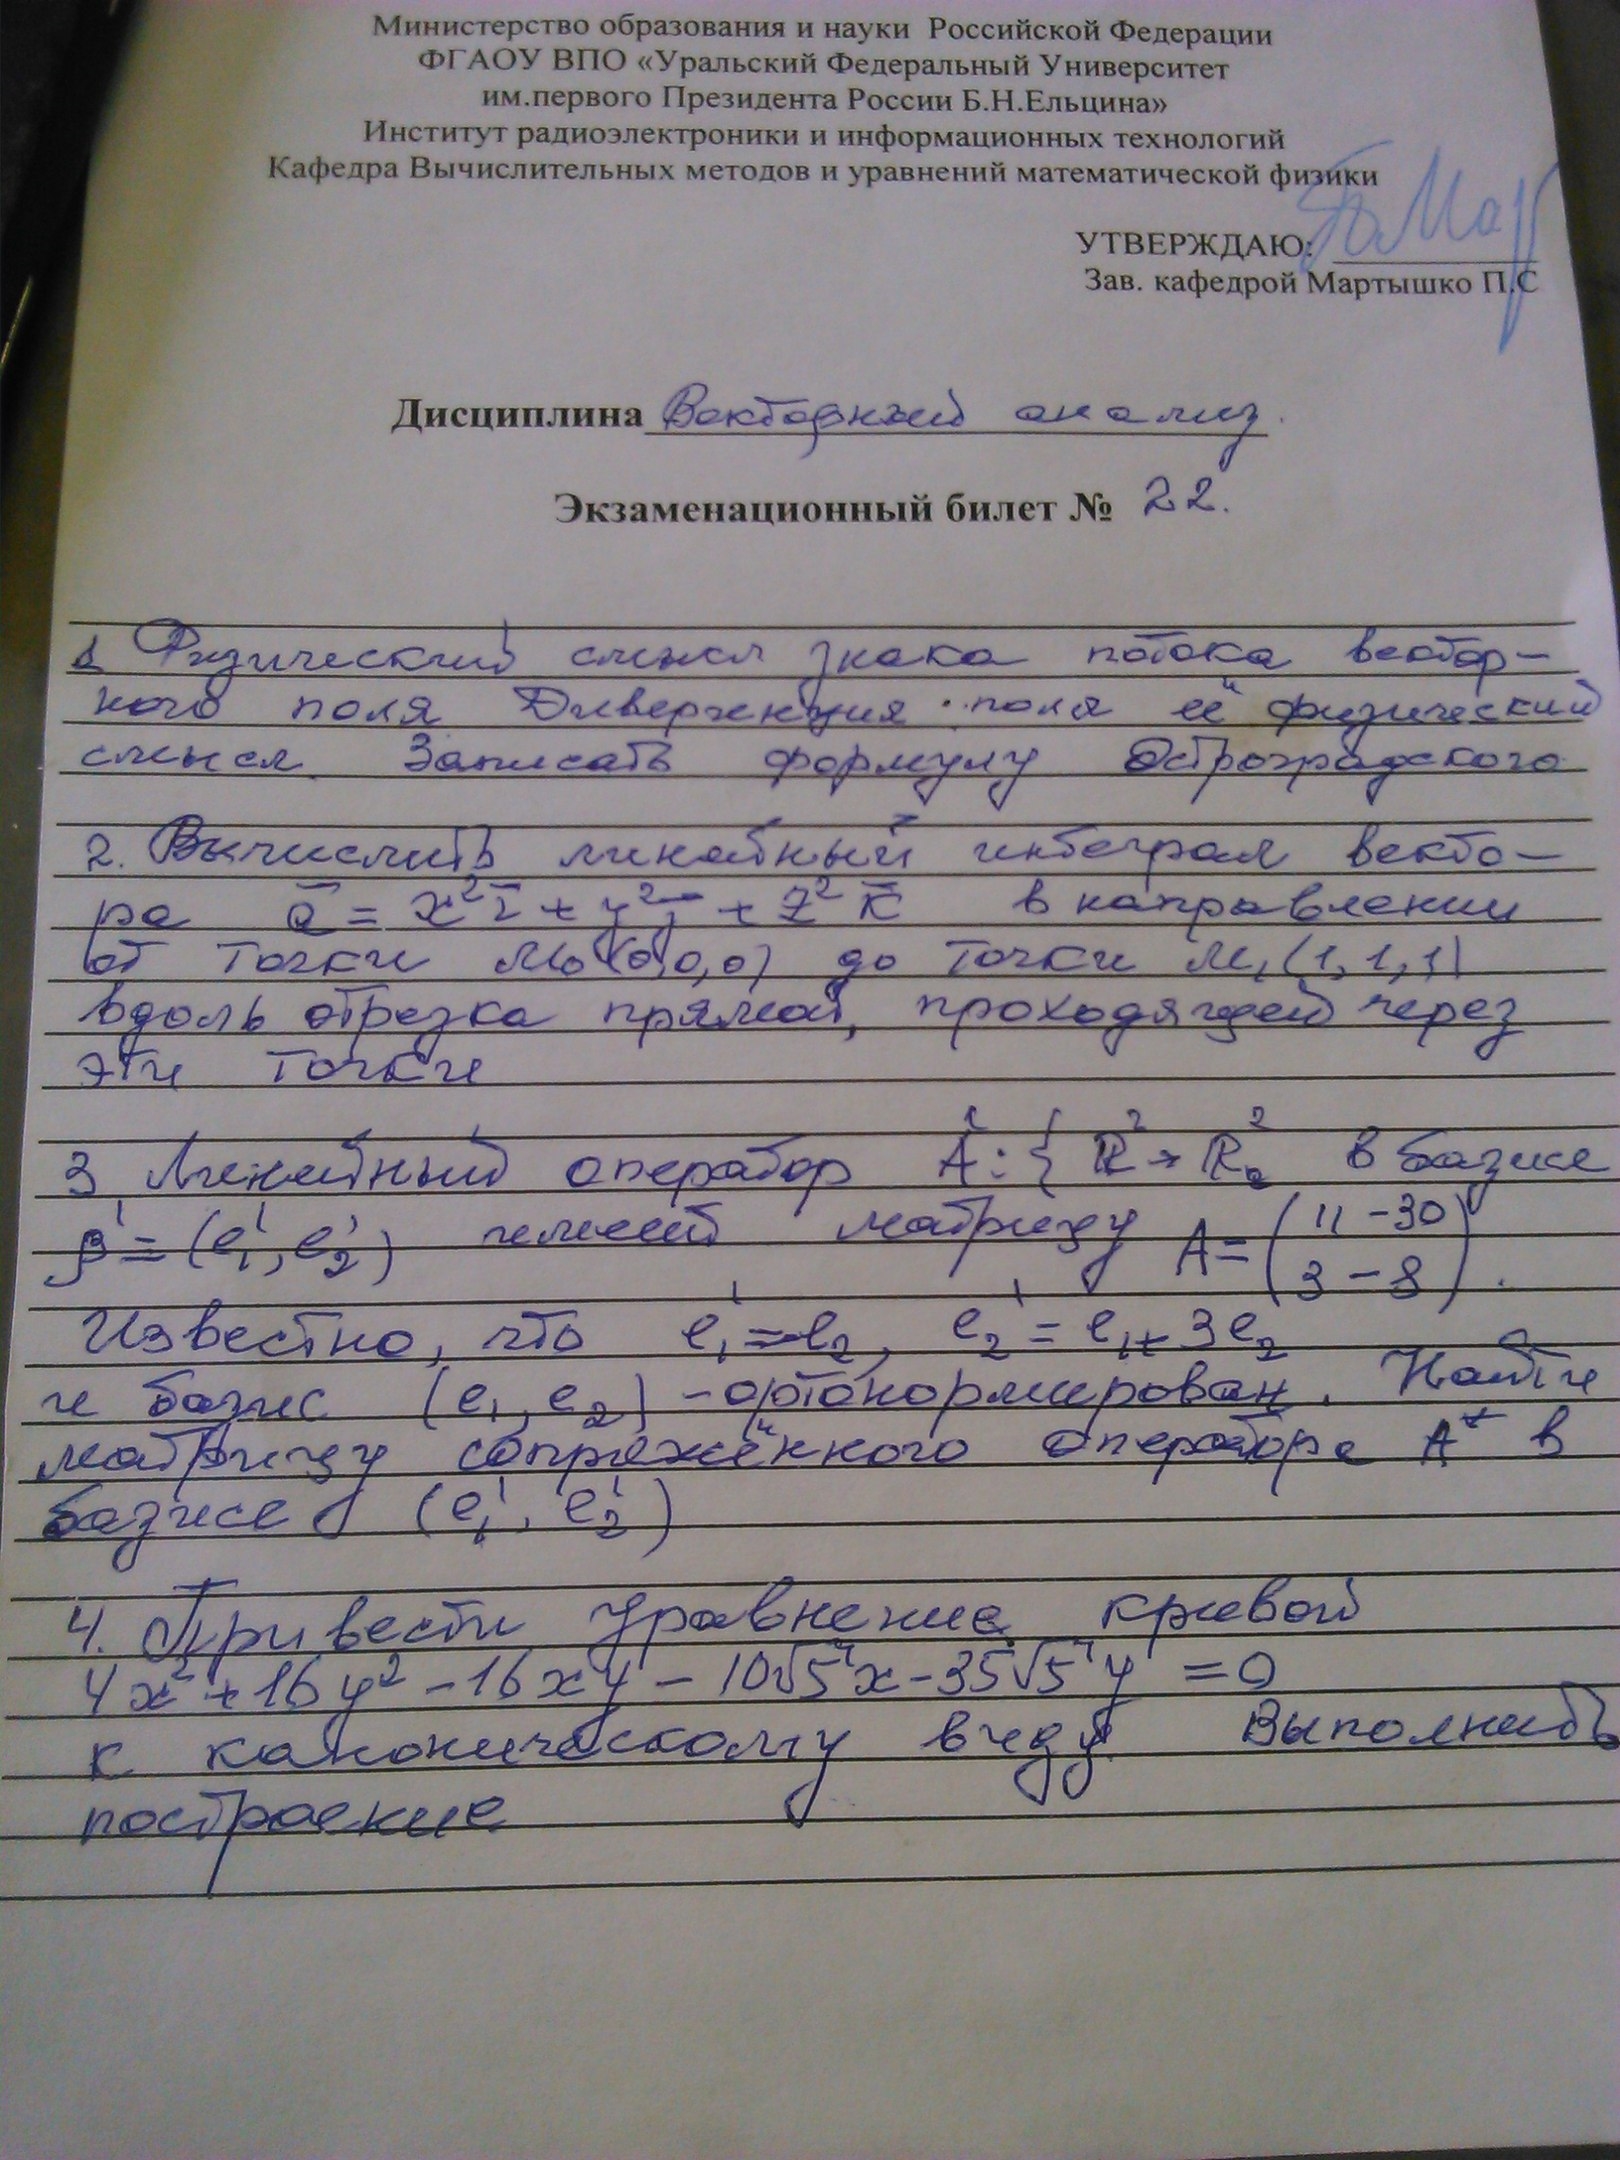 Министерство образования и науки Российской Федерации
ФГАОУ ВПО «Уральский Федеральный Университет
им.первого Президента России Б.Н.Ельцина»
Институт радиоэлектроники и информационных технологий
Кафедра Вычислительных методов и уравнений математической физики
УТВЕРЖДАЮ:
Зав. кафедрой Мартышко П.С
Дисциплина Векторный анализ.
Экзаменационный билет № 22.
1 Физический смысл знака потока вектор-
ного поля Дивергенция поля её физический
смысл. Записать формулу Остроградского
2. Вычислить линейный интеграл векто-
ра a̅ = x²i̅ + y²j̅ + z²k̅ в направлении
от точки M₀(0,0,0) до точки M₁(1,1,1)
вдоль отрезка прямой, проходящей через
эти точки
3 Линейный оператор Â: { R² → R² в базисе
β' = (e₁', e₂') имеет матрицу A = (11 -30
3 -8).
Известно, что e₁' = e₂, e₂' = e₁ + 3e₂
и базис (e₁, e₂) - ортонормирован. Найти
матрицу сопряжённого оператора A* в
базисе (e₁', e₂')
4. Привести уравнение кривой
4x² + 16y² - 16xy - 10√5 x - 35√5 y = 0
к каноническому виду. Выполнить
построение